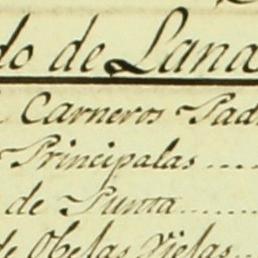 do de Lana
Carneros Pad
Principalas ....
de Punta ......
de Obejas Viejas..